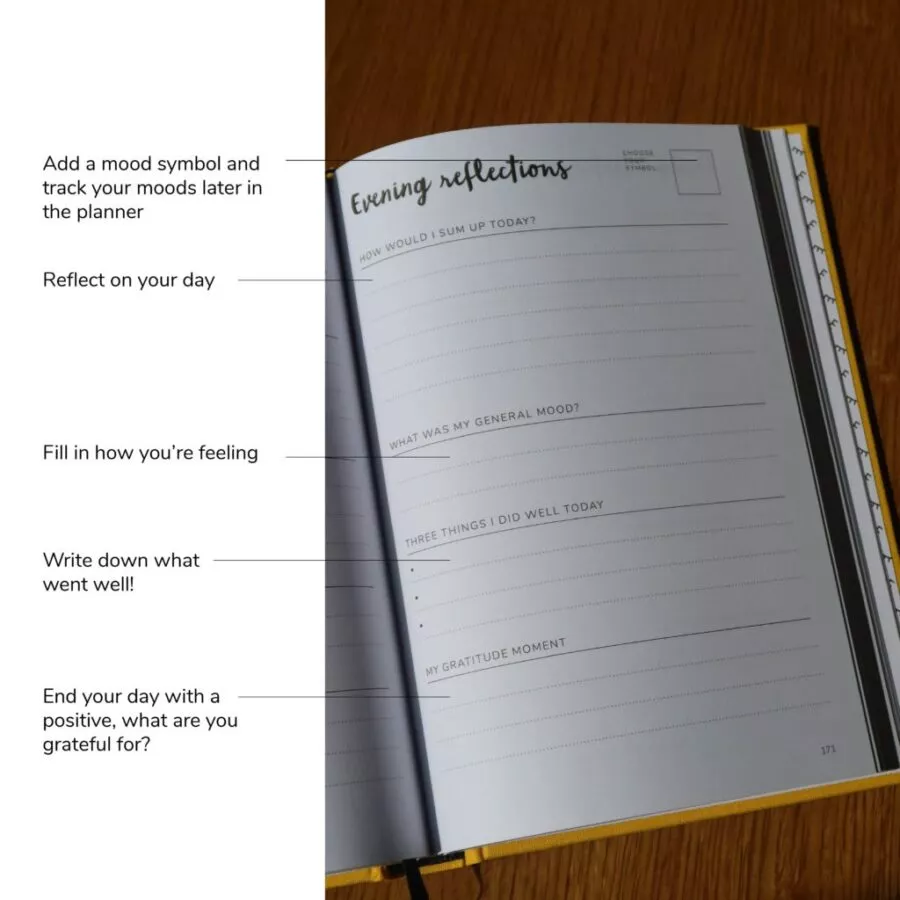 Add a mood symbol and
track your moods later in
the planner
Reflect on your day
Fill in how you're feeling
Write down what
went well!
End your day with a
positive, what are you
grateful for?
Evening reflections
CHOOSE
YOUR
SYMBOL:
HOW WOULD I SUM UP TODAY?
WHAT WAS MY GENERAL MOOD?
THREE THINGS I DID WELL TODAY
MY GRATITUDE MOMENT
171